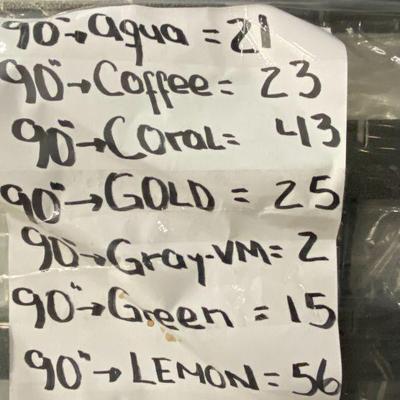 90"→aqua = 21
90"→Coffee = 23
90"→Coral = 43
90"→GOLD = 25
90"→Gray-VM = 2
90"→Green = 15
90"→LEMON = 56